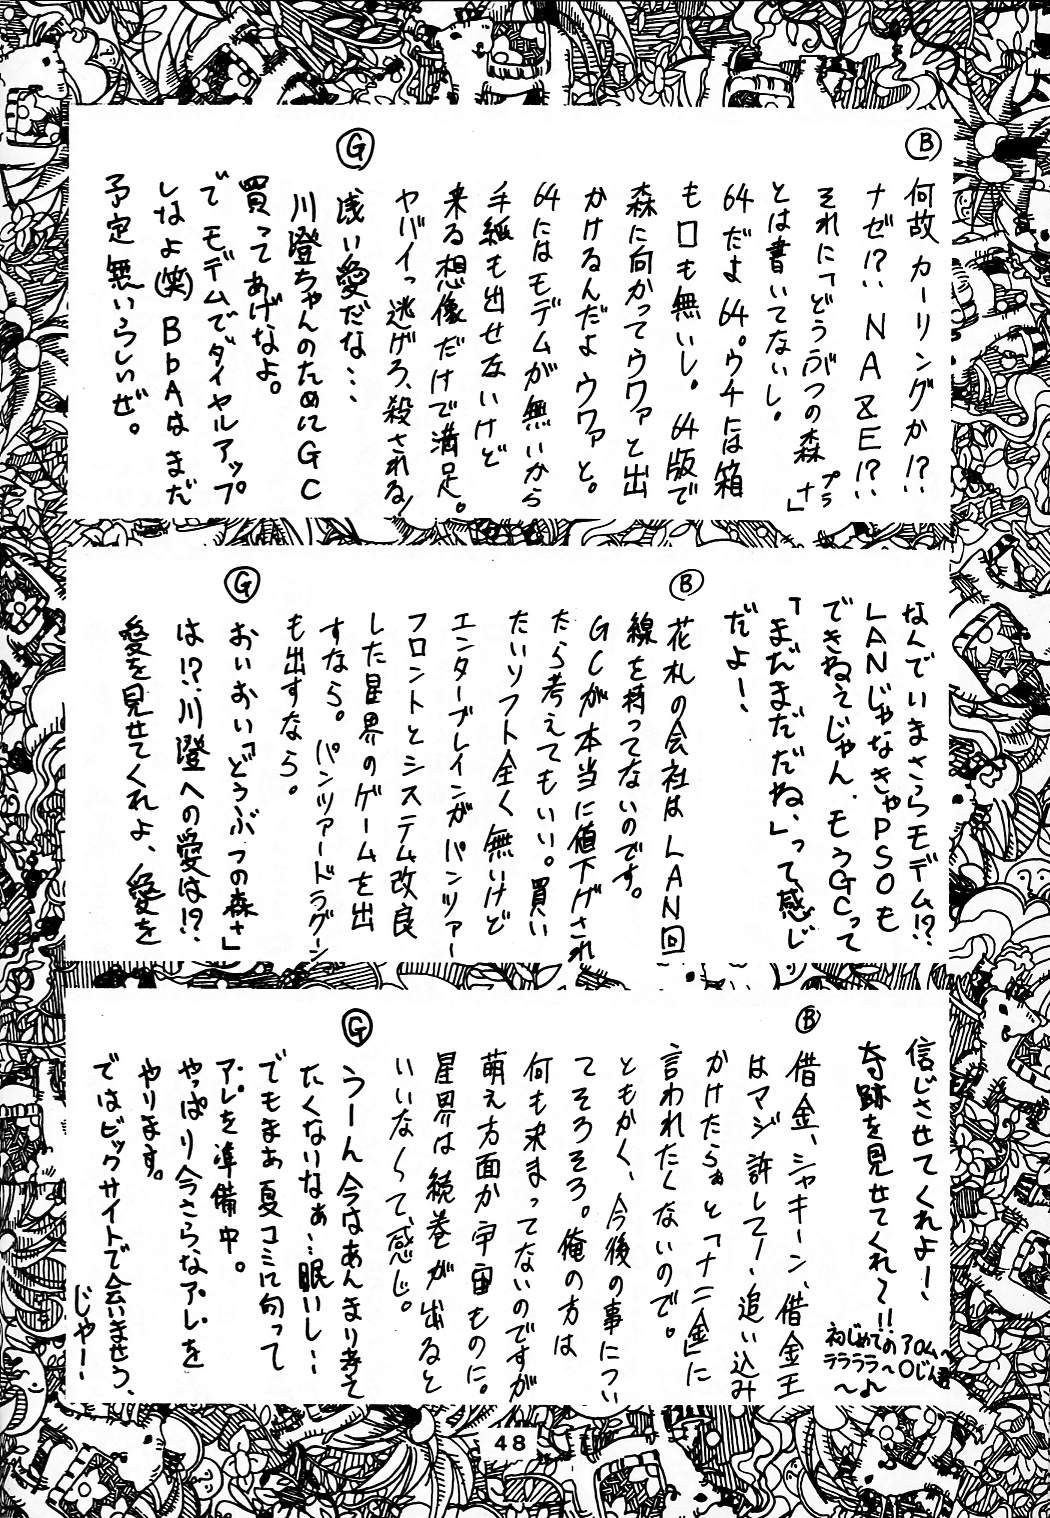 Ⓑ
何故カーリングか!?
ナゼ!? NAZE!?
それに「どうぶつの森プラナ」
とは書いてないし。
64だよ64。ウチには箱
も口も無いし。64版で
森に向かってウワァと出
かけるんだよ ウワァと。
64にはモデムが無いから
手紙も出せないけど
来る想像だけで満足。
ヤバイっ逃げろ、殺される!
Ⓖ
浅い愛だな…
川澄ちゃんのためにGC
買ってあげなよ。
で モデムでダイヤルアップ
しなよ(笑) BbAはまだ
予定無いらしいぜ。
なんでいまさらモデム!?
LANじゃなきゃPSOも
できねえじゃん.もうGCって
「まだまだだね、」って感じ
だよー
Ⓑ
花札の会社はLAN回
線を持ってないのです。
GCが本当に値下げされ
たら考えてもいい。買い
たいソフト全く無いけど
エンターブレインがパンツァー
フロントとシステム改良
した星界のゲームを出
すなら。パンツァードラグーン
も出すなら。
Ⓖ
おいおい「どうぶつの森+」
は!?川澄への愛は!?
愛を見せてくれよ、愛を
信じさせてくれよー
奇跡を見せてくれ〜!!
初じめての
ラララララ〜
〜♪
Ⓑ
借金、シャキーン、借金王
はマジ許してー 追い込み
かけたらぁと「ナニ金」に
言われたくないので。
ともかく、今後の事につい
てそろそろ。俺の方は
何も決まってないのですが
萌え方面か宇宙ものに。
星界は続巻が出ると
いいな〜って感じ。
Ⓖ
うーん今はあんまり考え
たくないなぁ…眠いし…
でもまぁ夏コミに向って
アレを準備中。
やっぱり今さらなアレを
やります。
ではビックサイトで会いませう、
じゃー
48